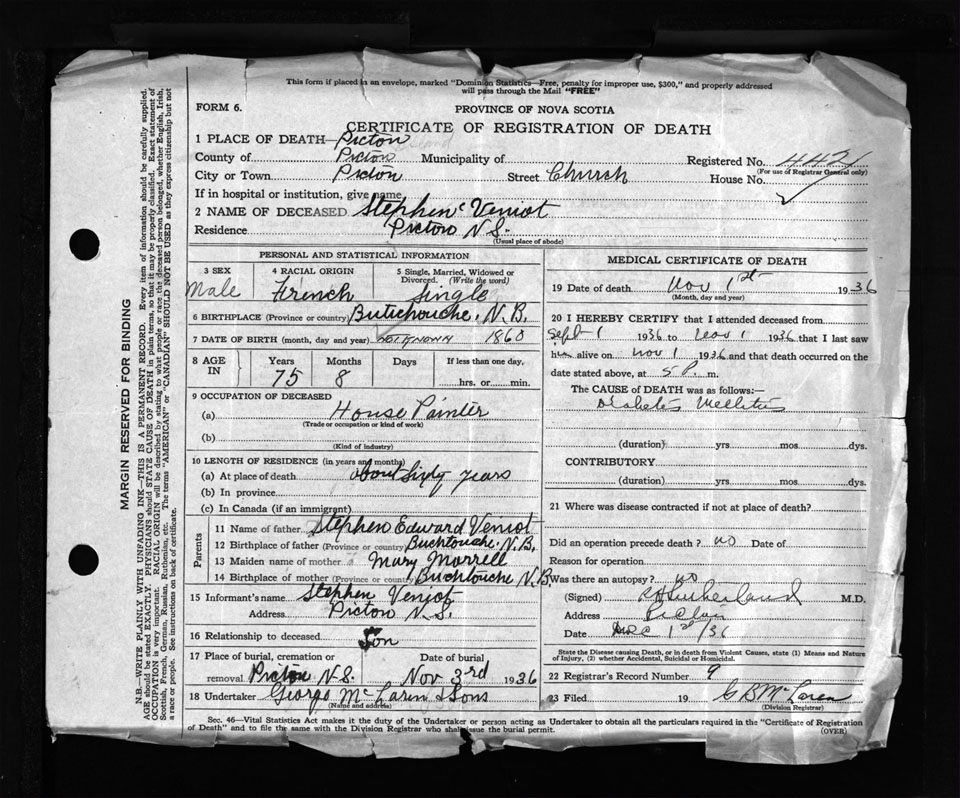 This form if placed in an envelope, marked "Dominion Statistics—Free, penalty for improper use, $300," and properly addressed
will pass through the Mail "FREE"
FORM 6.
PROVINCE OF NOVA SCOTIA
CERTIFICATE OF REGISTRATION OF DEATH
1 PLACE OF DEATH— Picton
County of Picton Municipality of Registered No. 4421
(For use of Registrar General only)
City or Town Picton Street Church House No.
If in hospital or institution, give name
2 NAME OF DECEASED Stephen Veniot
Residence Picton N.S.
(Usual place of abode)
PERSONAL AND STATISTICAL INFORMATION
3 SEX 4 RACIAL ORIGIN 5 Single, Married, Widowed or Divorced. (Write the word)
Male French Single
6 BIRTHPLACE (Province or country) Butichouche, N.B.
7 DATE OF BIRTH (month, day and year) Not Known 1860
8 AGE IN Years Months Days If less than one day,
75 8 hrs. or min.
9 OCCUPATION OF DECEASED
(a) House Painter
(Trade or occupation or kind of work)
(b)
(Kind of industry)
10 LENGTH OF RESIDENCE (in years and months)
(a) At place of death about Sixty years
(b) In province
(c) In Canada (if an immigrant)
Parents
11 Name of father Stephen Edward Veniot
12 Birthplace of father (Province or country) Buchtouche. N.B.
13 Maiden name of mother Mary Morrell
14 Birthplace of mother (Province or country) Buchtouche N.B.
15 Informant's name Stephen Veniot
Address Picton N.S.
16 Relationship to deceased Son
17 Place of burial, cremation or removal Picton N.S. Date of burial Nov 3rd 1936
18 Undertaker Giorgo McLaren & Sons
(Name and address)
MEDICAL CERTIFICATE OF DEATH
19 Date of death Nov 1st 1936
(Month, day and year)
20 I HEREBY CERTIFY that I attended deceased from
Sept 1 1936 to Nov 1 1936 that I last saw
him alive on Nov 1 1936 and that death occurred on the
date stated above, at 5 P. m.
The CAUSE OF DEATH was as follows:—
Diabetes Mellitus
(duration) yrs. mos. dys.
CONTRIBUTORY
(duration) yrs. mos. dys.
21 Where was disease contracted if not at place of death?
Did an operation precede death? no Date of
Reason for operation
Was there an autopsy? no
(Signed) Sutherland M.D.
Address
Date 1st/36
State the Disease causing Death, or in death from Violent Causes, state (1) Means and Nature
of Injury, (2) whether Accidental, Suicidal or Homicidal.
22 Registrar's Record Number 9
23 Filed 19 G B McLaren
(Division Registrar)
Sec. 46—Vital Statistics Act makes it the duty of the Undertaker or person acting as Undertaker to obtain all the particulars required in the "Certificate of Registration
of Death" and to file the same with the Division Registrar who shall issue the burial permit.
(OVER)
MARGIN RESERVED FOR BINDING
N.B.—WRITE PLAINLY WITH UNFADING INK—THIS IS A PERMANENT RECORD. Every item of information should be carefully supplied.
AGE should be stated EXACTLY. PHYSICIANS should STATE CAUSE OF DEATH in plain terms, so that it may be properly classified. Exact statement of
OCCUPATION is very important. RACIAL ORIGIN will be described by stating to what people or race the deceased person belonged, whether English, Irish,
Scottish, French, German, Russian, Ruthenian, etc. The terms "AMERICAN" or "CANADIAN" SHOULD NOT BE USED as they express citizenship but not
a race or people. See instructions on back of certificate.